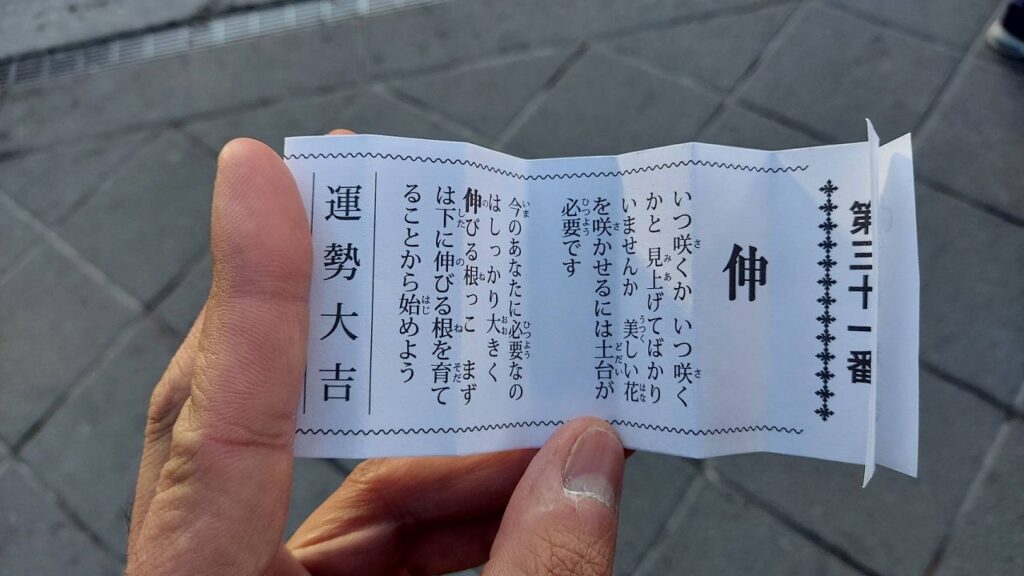 第三十一番
伸
いつ咲くか いつ咲く
かと 見上げてばかり
いませんか 美しい花
を咲かせるには土台が
必要です
今のあなたに必要なの
はしっかり大きく
伸びる根っこ まず
は下に伸びる根を育て
ることから始めよう
運勢大吉